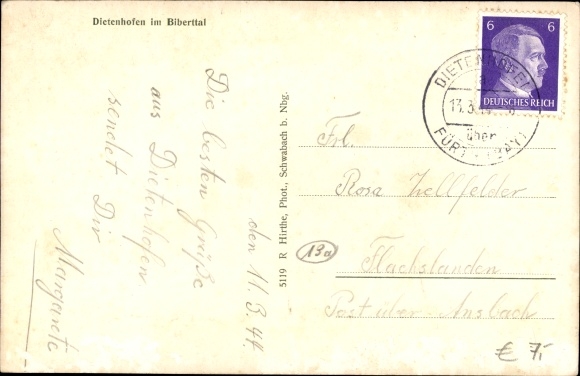 Dietenhofen im Biberttal
Die besten Grüße
aus Dietenhofen
sendet Dir
Margarete
den 11.3.44
5119 R Hirthe, Phot., Schwabach b. Nbg.
6 6
DEUTSCHES REICH
DIETENHOFEN
a
13.3.
über
FÜRTH (BAY)
Frl.
Rosa Zellfelder
13a
Flachslanden
Post über Ansbach
€ 7,-